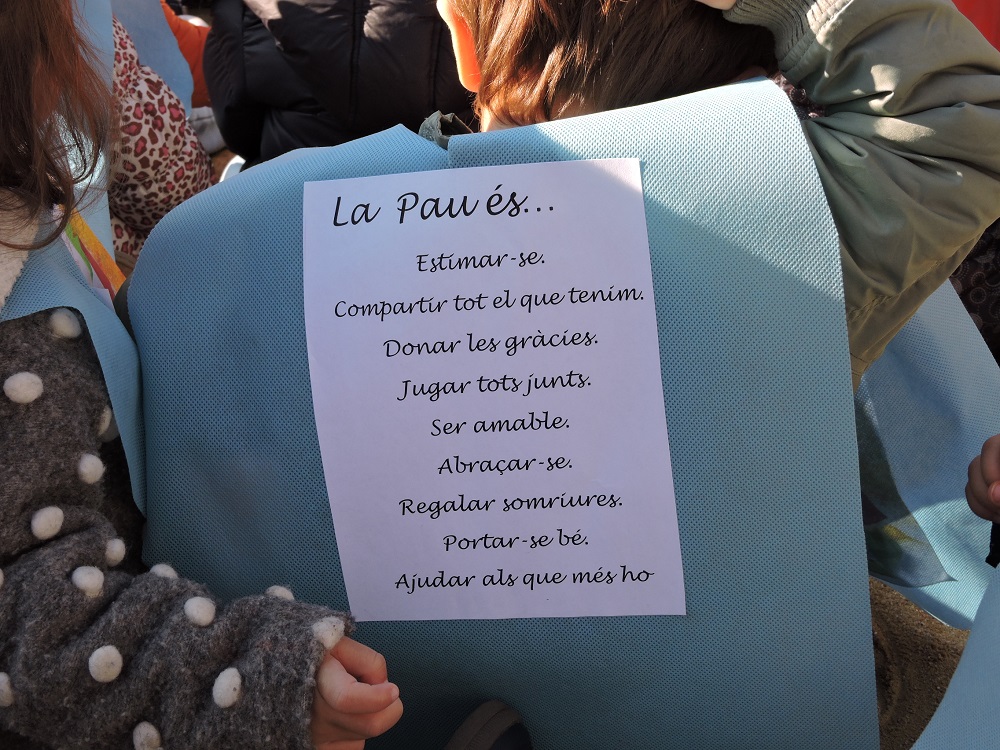 La Pau és...
Estimar-se.
Compartir tot el que tenim.
Donar les gràcies.
Jugar tots junts.
Ser amable.
Abraçar-se.
Regalar somriures.
Portar-se bé.
Ajudar als que més ho